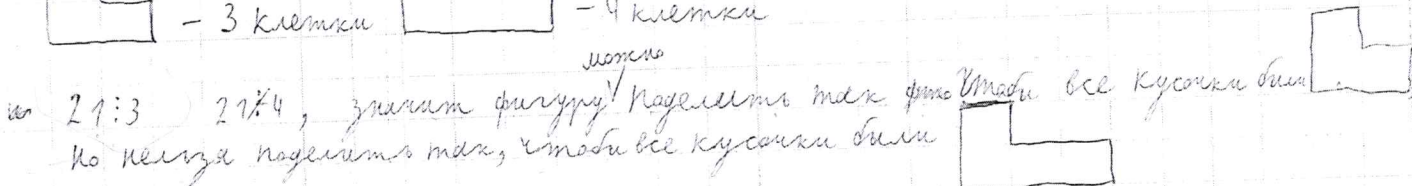 - 3 клетки - 4 клетки
можно
21:3 21⁒4, значит фигуру поделить так чтоби все кусочки били
но нельзя поделить так, чтоби все кусочки били